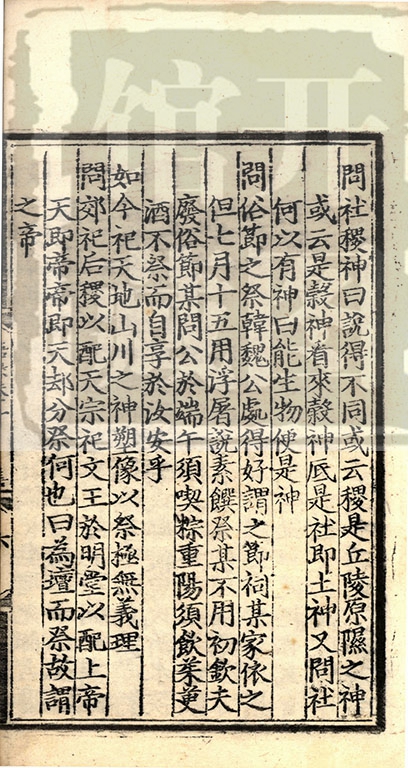 問社稷神曰說得不同或云稷是丘陵原隰之神
或云是穀神看來穀神底是社即土神又問社
何以有神曰能生物便是神
問俗節之祭韓魏公處得好謂之節祠某家依之
但七月十五用浮屠說素饌祭某不用初欽夫
廢俗節某問公於端午須喫粽重陽須飲茱萸
酒不祭而自享於汝安乎
如今祀天地山川之神塑像以祭極無義理
問郊祀后稷以配天宗祀文王於明堂以配上帝
天即帝帝即天却分祭何也曰為壇而祭故謂
之帝